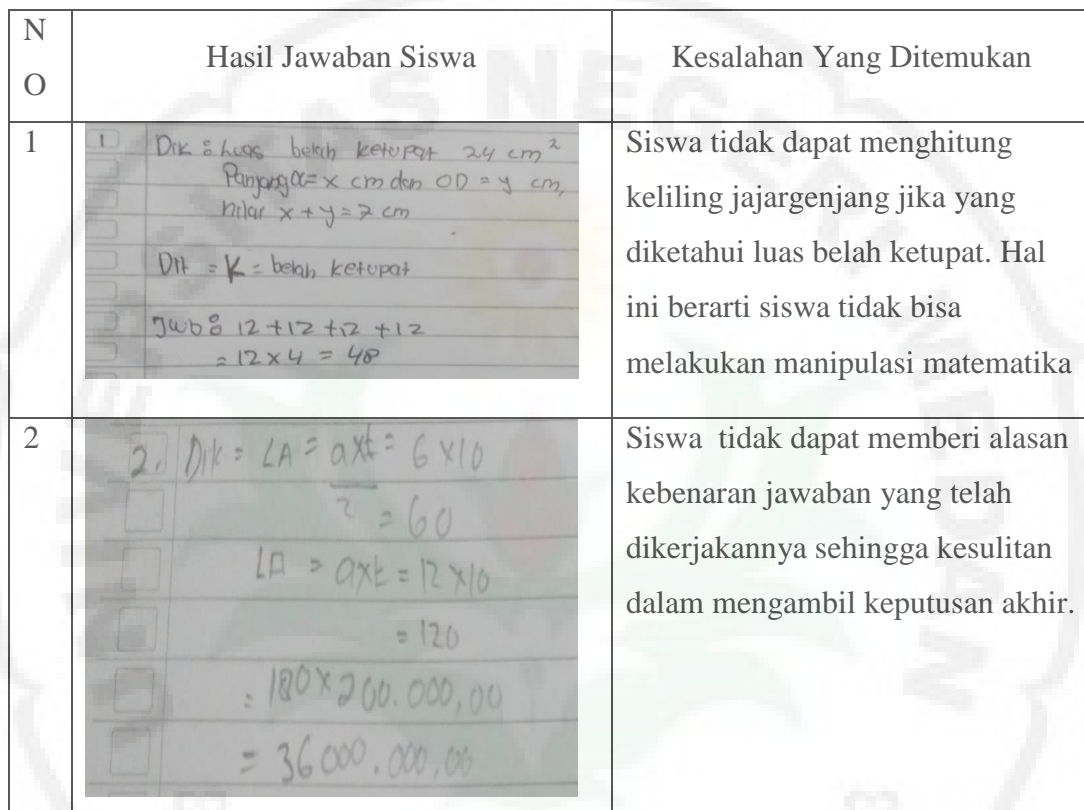 N
O
Hasil Jawaban Siswa
Kesalahan Yang Ditemukan
1
1 Dik : Luas belah ketupat 24 cm²
Panjang = x cm dan OD = y cm,
nilai x + y = 7 cm
Dit = K = belah ketupat
Jwb : 12 + 12 + 12 + 12
= 12 × 4 = 48
Siswa tidak dapat menghitung
keliling jajargenjang jika yang
diketahui luas belah ketupat. Hal
ini berarti siswa tidak bisa
melakukan manipulasi matematika
2
2. Dik = LA = axt = 6 x 10
2 = 60
LA = axt = 12 x 10
= 120
= 180 x 200.000,00
= 36000.000,00
Siswa tidak dapat memberi alasan
kebenaran jawaban yang telah
dikerjakannya sehingga kesulitan
dalam mengambil keputusan akhir.